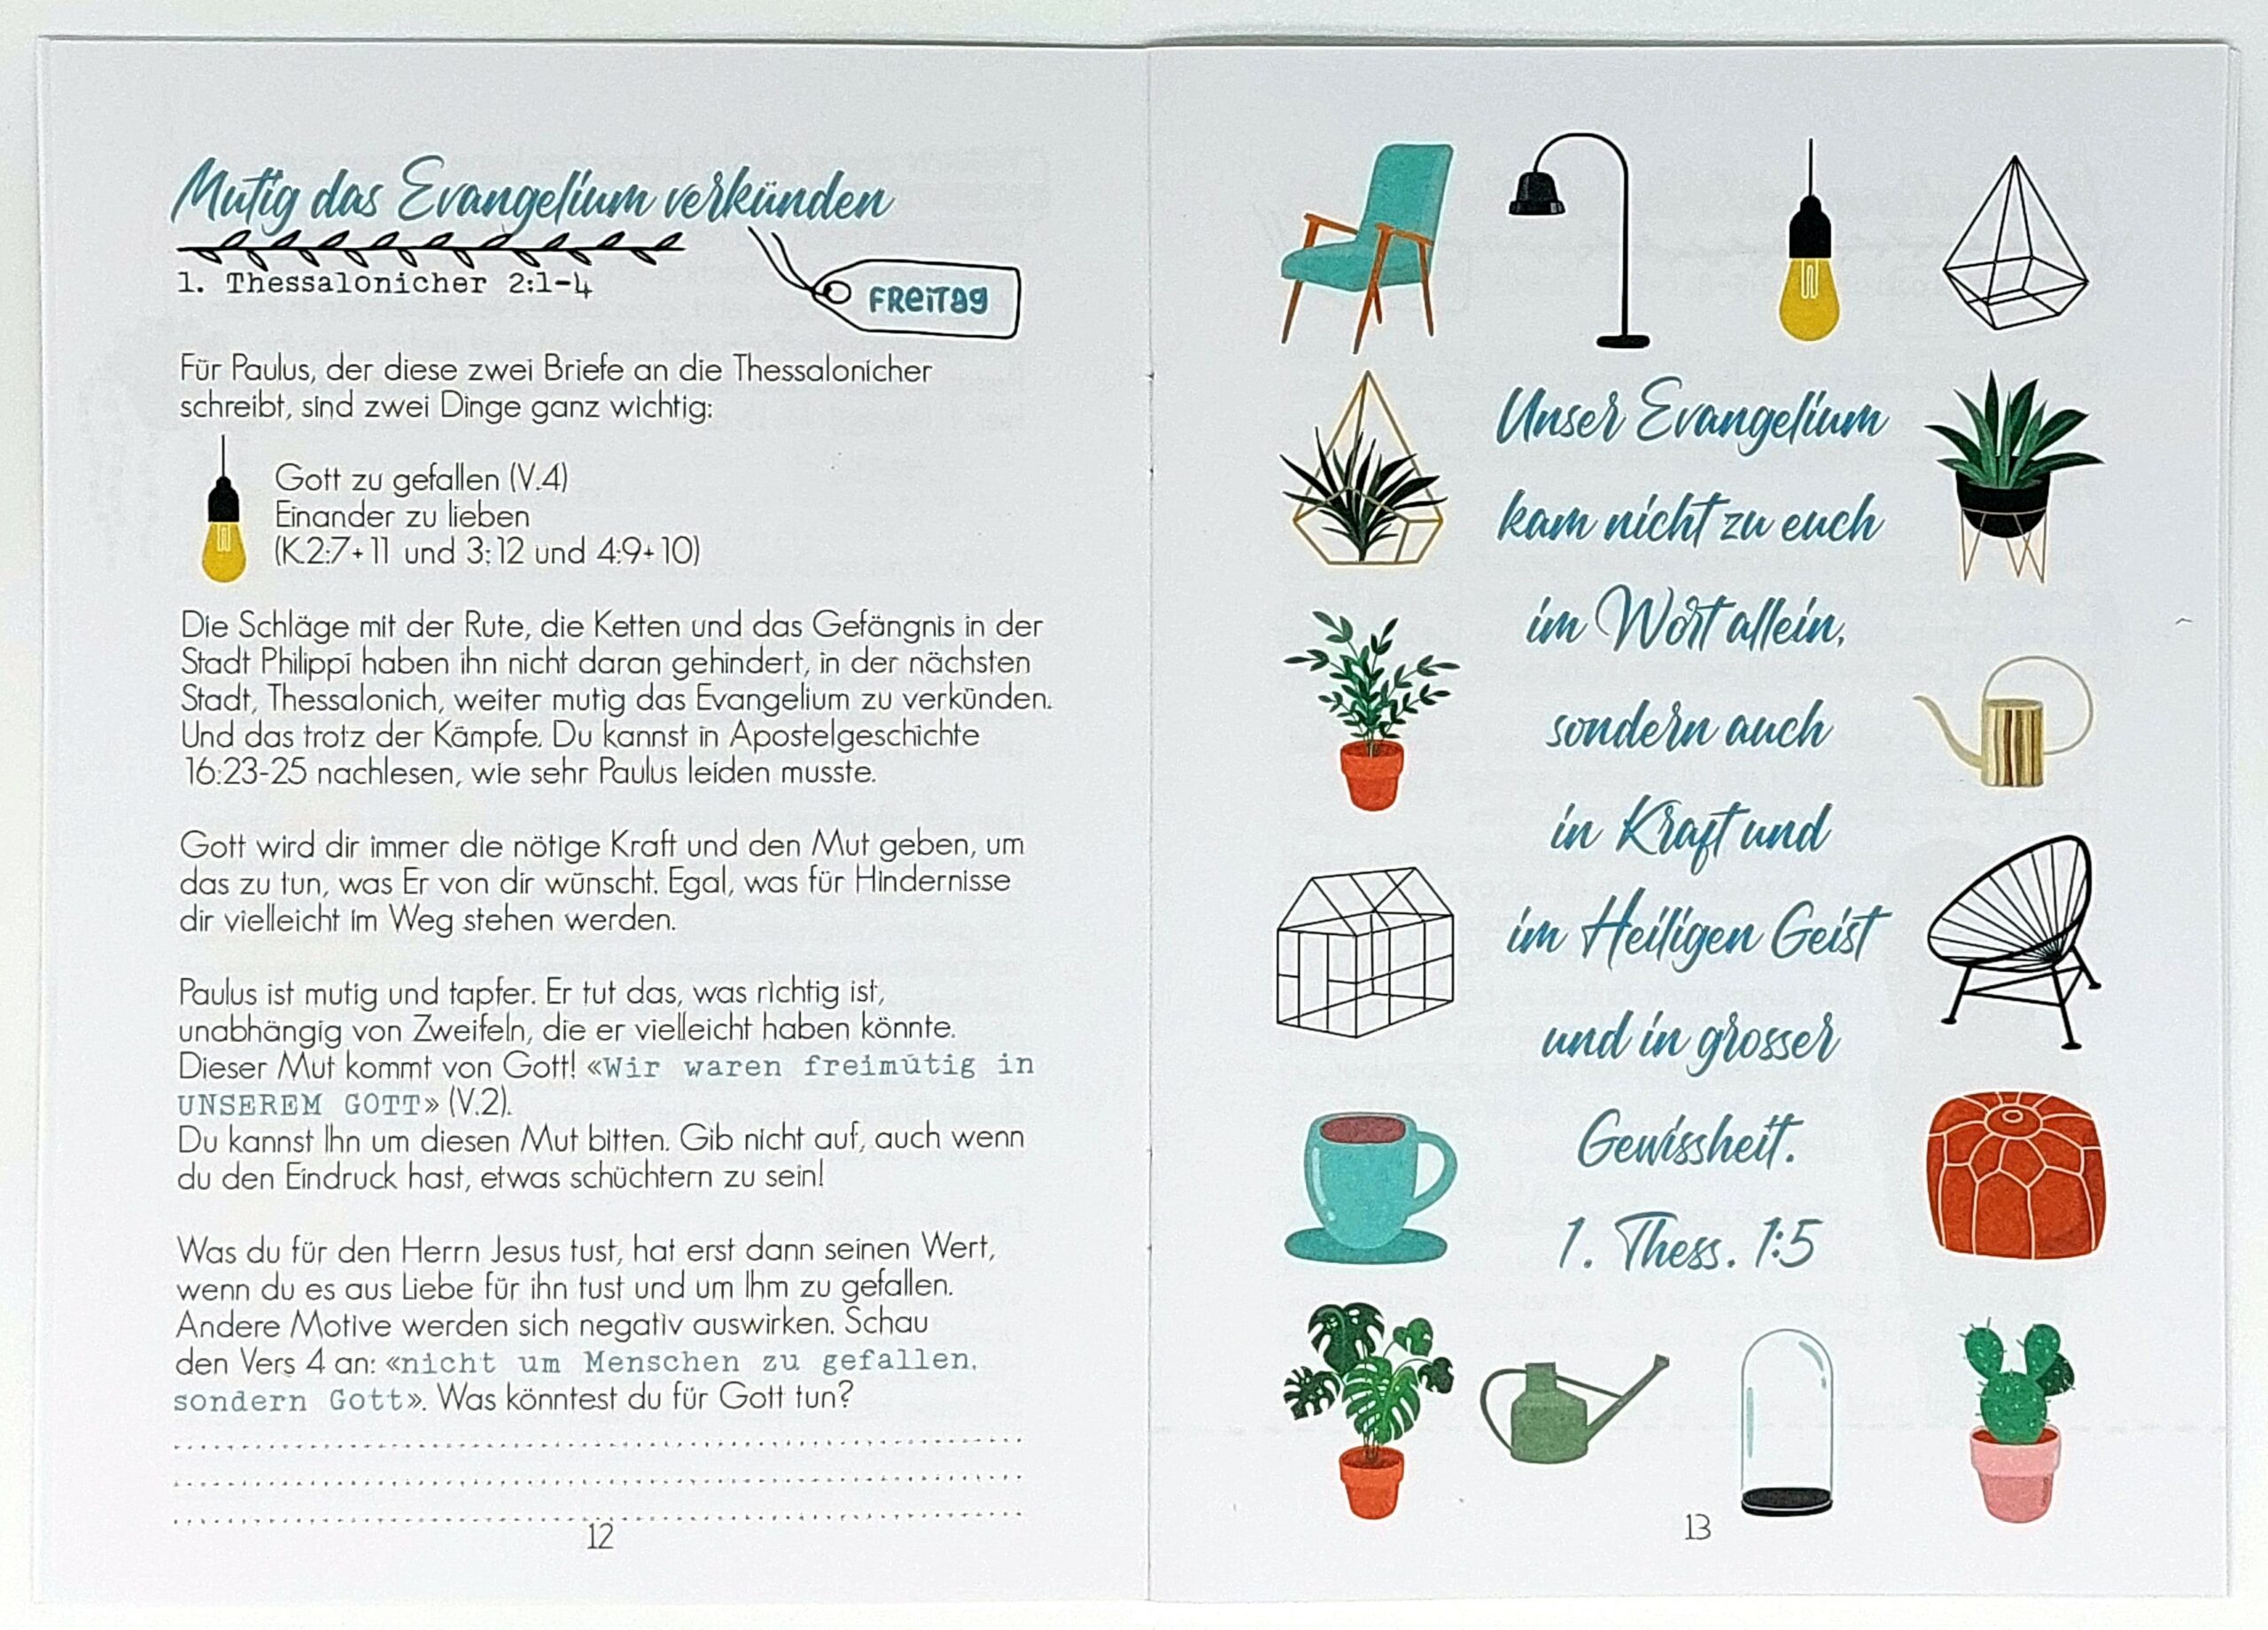 Mutig das Evangelium verkünden
1. Thessalonicher 2:1-4
FReiTag
Für Paulus, der diese zwei Briefe an die Thessalonicher
schreibt, sind zwei Dinge ganz wichtig:
Gott zu gefallen (V.4)
Einander zu lieben
(K.2:7+11 und 3:12 und 4:9+10)
Die Schläge mit der Rute, die Ketten und das Gefängnis in der
Stadt Philippi haben ihn nicht daran gehindert, in der nächsten
Stadt, Thessalonich, weiter mutig das Evangelium zu verkünden.
Und das trotz der Kämpfe. Du kannst in Apostelgeschichte
16:23-25 nachlesen, wie sehr Paulus leiden musste.
Gott wird dir immer die nötige Kraft und den Mut geben, um
das zu tun, was Er von dir wünscht. Egal, was für Hindernisse
dir vielleicht im Weg stehen werden.
Paulus ist mutig und tapfer. Er tut das, was richtig ist,
unabhängig von Zweifeln, die er vielleicht haben könnte.
Dieser Mut kommt von Gott! «Wir waren freimütig in
UNSEREM GOTT» (V.2).
Du kannst Ihn um diesen Mut bitten. Gib nicht auf, auch wenn
du den Eindruck hast, etwas schüchtern zu sein!
Was du für den Herrn Jesus tust, hat erst dann seinen Wert,
wenn du es aus Liebe für ihn tust und um Ihm zu gefallen.
Andere Motive werden sich negativ auswirken. Schau
den Vers 4 an: «nicht um Menschen zu gefallen,
sondern Gott». Was könntest du für Gott tun?
12
Unser Evangelium
kam nicht zu euch
im Wort allein,
sondern auch
in Kraft und
im Heiligen Geist
und in grosser
Gewissheit.
1. Thess. 1:5
13